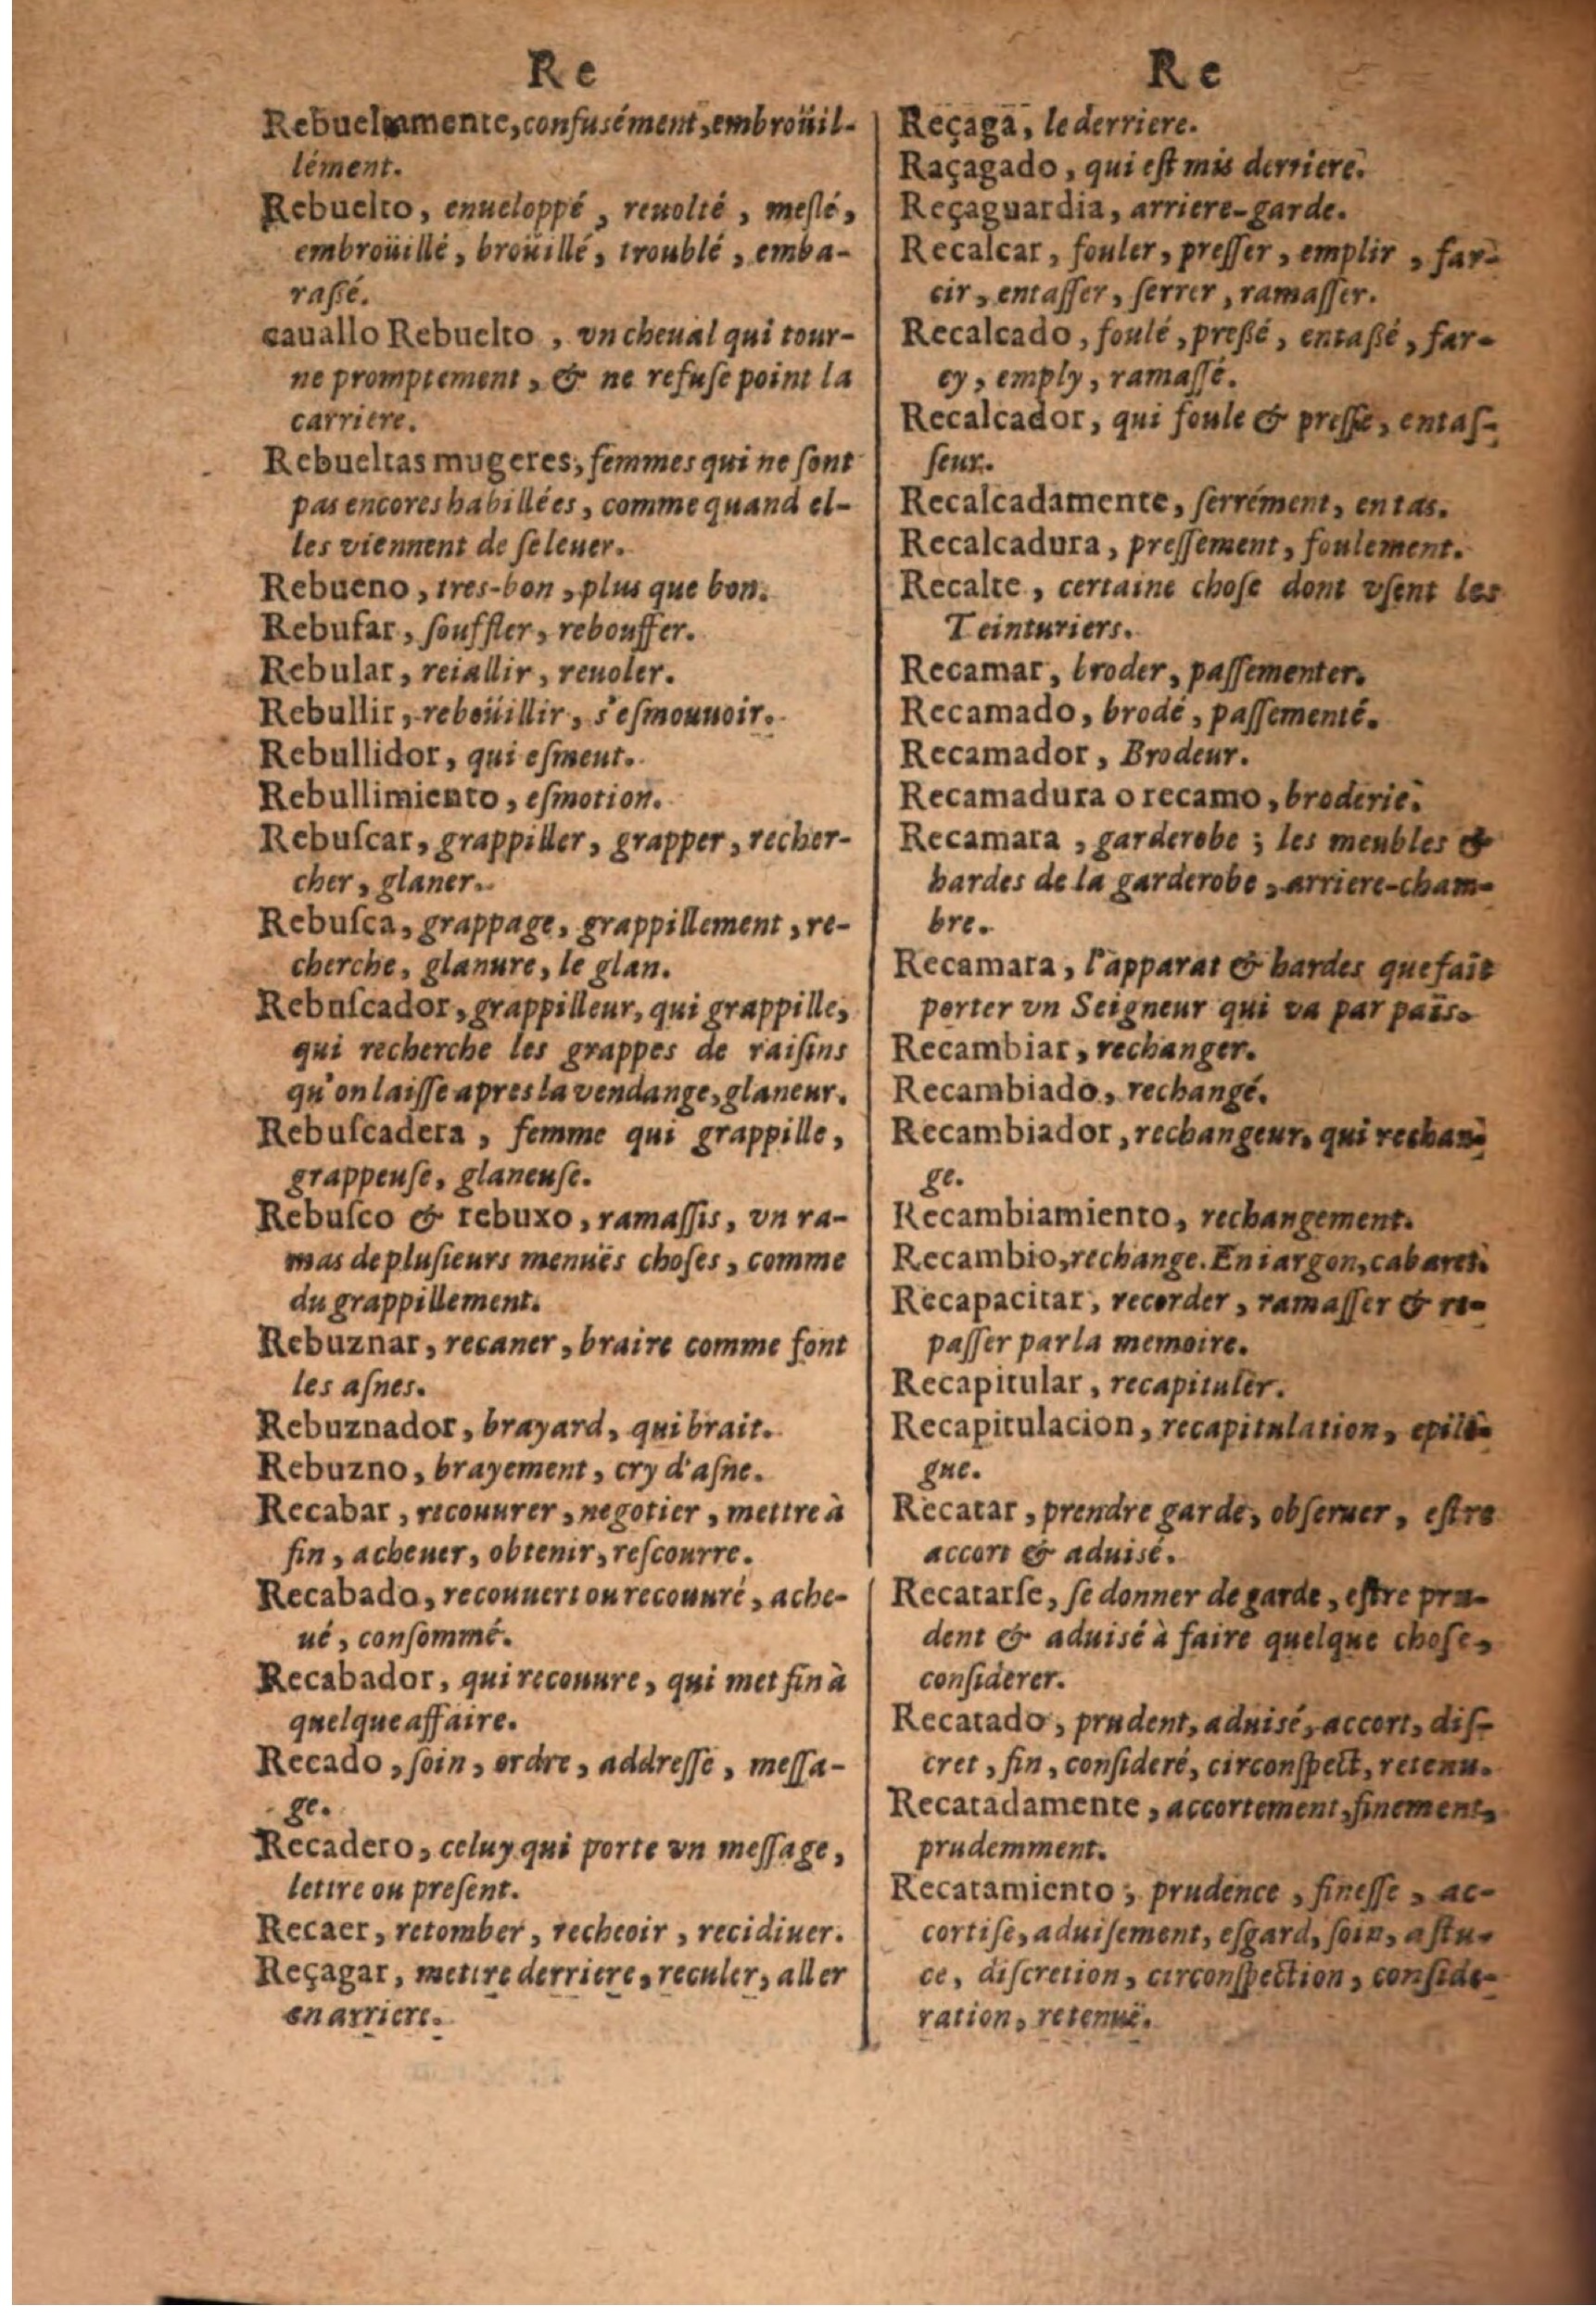 Re
Rebueltamente, confusément, embroüil-
lément.
Rebuelto, enueloppé, reuolté, meslé,
embroüillé, broüillé, troublé, emba-
raßé.
cauallo Rebuelto, vn cheual qui tour-
ne promptement, & ne refuse point la
carriere.
Rebueltas mugeres, femmes qui ne sont
pas encores habillées, comme quand el-
les viennent de se leuer.
Rebueno, tres-bon, plus que bon.
Rebufar, souffler, rebouffer.
Rebular, reiallir, reuoler.
Rebullir, reboüillir, s'esmouuoir.
Rebullidor, qui esmeut.
Rebullimiento, esmotion.
Rebuſcar, grappiller, grapper, recher-
cher, glaner.
Rebuſca, grappage, grappillement, re-
cherche, glanure, le glan.
Rebuſcador, grappilleur, qui grappille,
qui recherche les grappes de raiſins
qu'on laiſſe apres la vendange, glaneur.
Rebuſcadera, femme qui grappille,
grappeuſe, glaneuſe.
Rebuſco & rebuxo, ramaſſis, vn ra-
mas de pluſieurs menuës choſes, comme
du grappillement.
Rebuznar, recaner, braire comme font
les aſnes.
Rebuznador, brayard, qui brait.
Rebuzno, brayement, cry d'aſne.
Recabar, recouurer, negotier, mettre à
fin, acheuer, obtenir, reſcourre.
Recabado, recouuert ou recouuré, ache-
ué, conſommé.
Recabador, qui recouure, qui met fin à
quelque affaire.
Recado, ſoin, ordre, addreſſe, meſſa-
ge.
Recadero, celuy qui porte vn meſſage,
lettre ou preſent.
Recaer, retomber, recheoir, recidiuer.
Reçagar, mettre derriere, reculer, aller
en arriere.
Re
Reçaga, le derriere.
Raçagado, qui eſt mis derriere.
Reçaguardia, arriere-garde.
Recalcar, fouler, preſſer, emplir, far-
cir, entaſſer, ſerrer, ramaſſer.
Recalcado, foulé, preßé, entaßé, far-
cy, emply, ramaſſé.
Recalcador, qui foule & preſſe, entaſ-
ſeur.
Recalcadamente, ſerrément, en tas.
Recalcadura, preſſement, foulement.
Recalte, certaine choſe dont vſent les
Teinturiers.
Recamar, broder, paſſementer.
Recamado, brodé, paſſementé.
Recamador, Brodeur.
Recamadura o recamo, broderie.
Recamara, garderobe; les meubles &
hardes de la garderobe, arriere-cham-
bre.
Recamara, l'apparat & hardes que fait
porter vn Seigneur qui va par païs.
Recambiar, rechanger.
Recambiado, rechangé.
Recambiador, rechangeur, qui rechan-
ge.
Recambiamiento, rechangement.
Recambio, rechange. En iargon, cabaret.
Recapacitar, recorder, ramaſſer & re-
paſſer par la memoire.
Recapitular, recapituler.
Recapitulacion, recapitulation, epilo-
gue.
Recatar, prendre garde, obſeruer, eſtre
accort & aduisé.
Recatarſe, ſe donner de garde, eſtre pru-
dent & aduisé à faire quelque choſe,
conſiderer.
Recatado, prudent, aduisé, accort, diſ-
cret, fin, conſideré, circonſpect, retenu.
Recatadamente, accortement, finement,
prudemment.
Recatamiento, prudence, fineſſe, ac-
cortiſe, aduiſement, eſgard, ſoin, aſtu-
ce, diſcretion, circonſpection, conſide-
ration, retenuë.